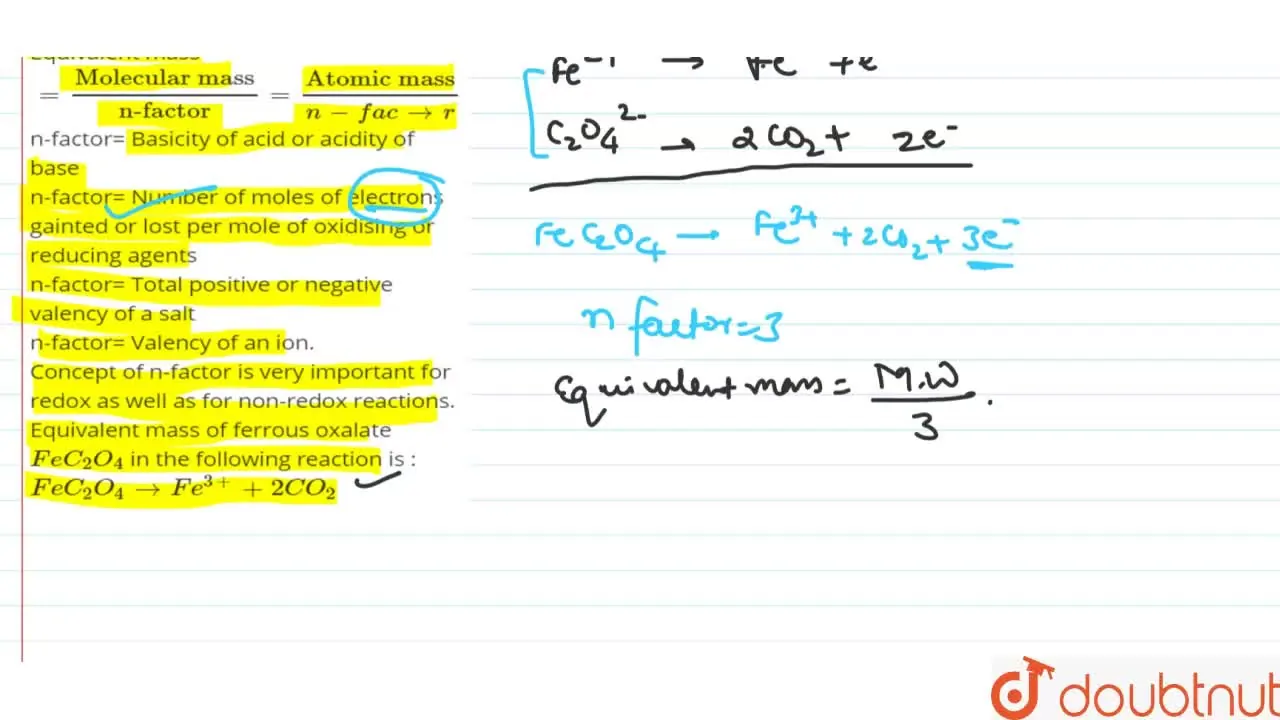 Equivalent mass
= Molecular mass / n-factor = Atomic mass / n − fac → r
n-factor= Basicity of acid or acidity of
base
n-factor= Number of moles of electrons
gainted or lost per mole of oxidising or
reducing agents
n-factor= Total positive or negative
valency of a salt
n-factor= Valency of an ion.
Concept of n-factor is very important for
redox as well as for non-redox reactions.
Equivalent mass of ferrous oxalate
FeC₂O₄ in the following reaction is :
FeC₂O₄ → Fe³⁺ + 2CO₂
C₂O₄²⁻ → 2CO₂ + 2e⁻
FeC₂O₄ → Fe³⁺ + 2CO₂ + 3e⁻
n factor = 3
Equivalent mass = M.W / 3 .
doubtnut